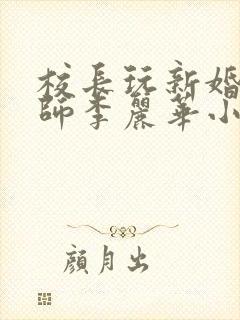 校長玩新婚
師李麗華小
顏月出